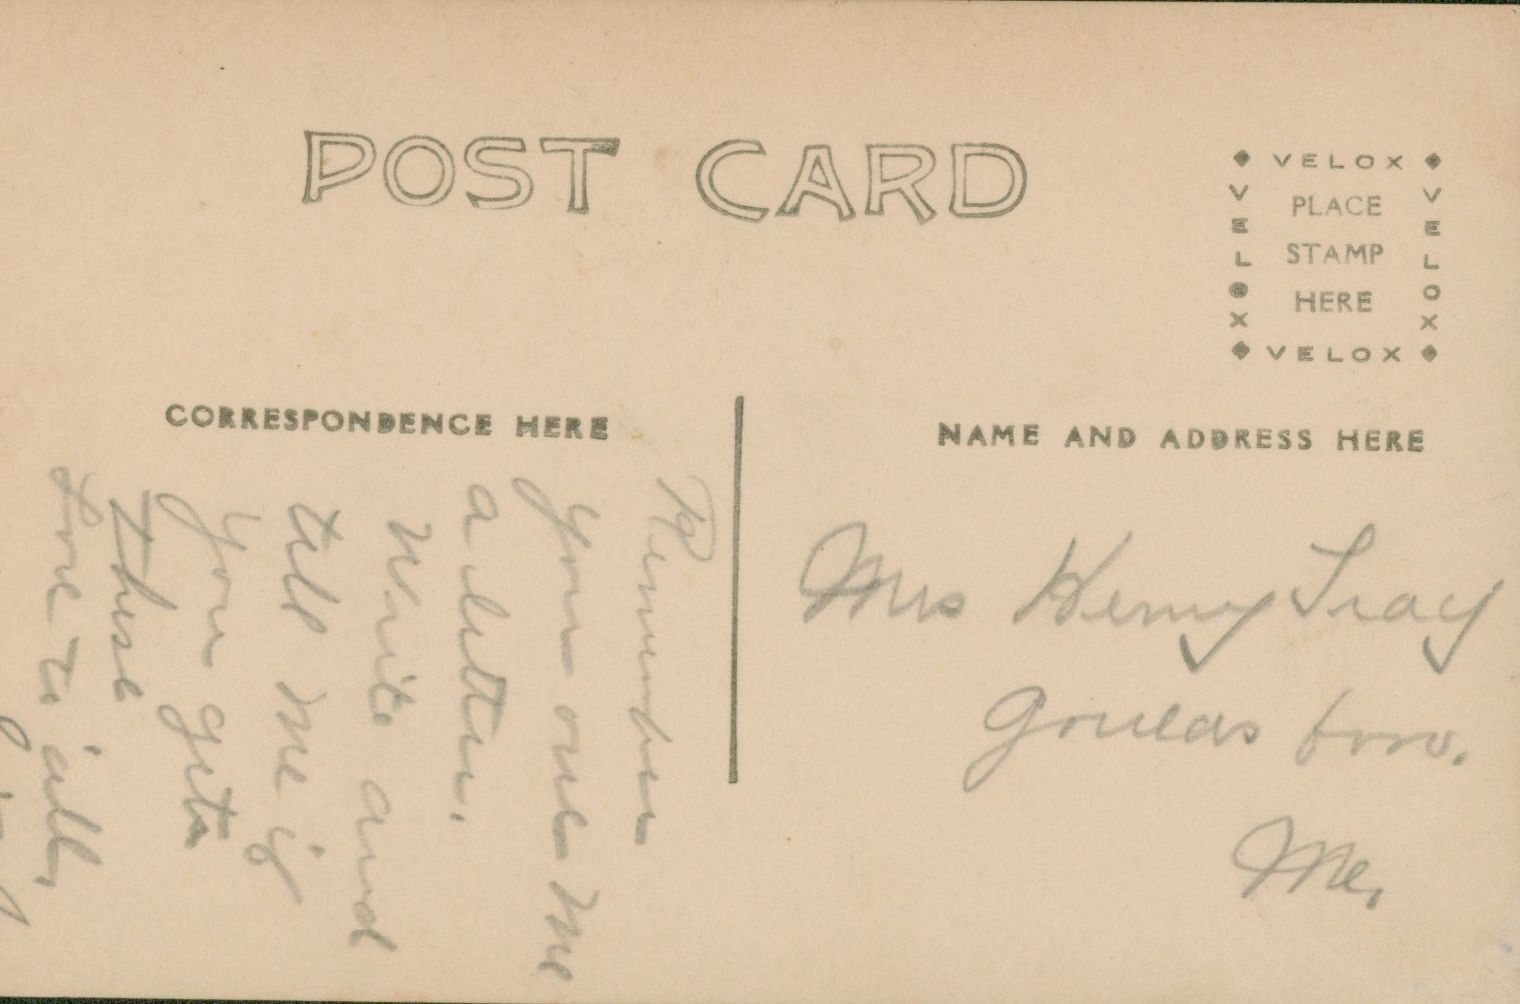 POST CARD
VELOX
VELOX
PLACE
STAMP
HERE
VELOX
VELOX
CORRESPONDENCE HERE
NAME AND ADDRESS HERE
Remember
you owe me
a letter.
Write and
tell me if
you get
these
Love to all,
Mrs Henry Tracy
Me.